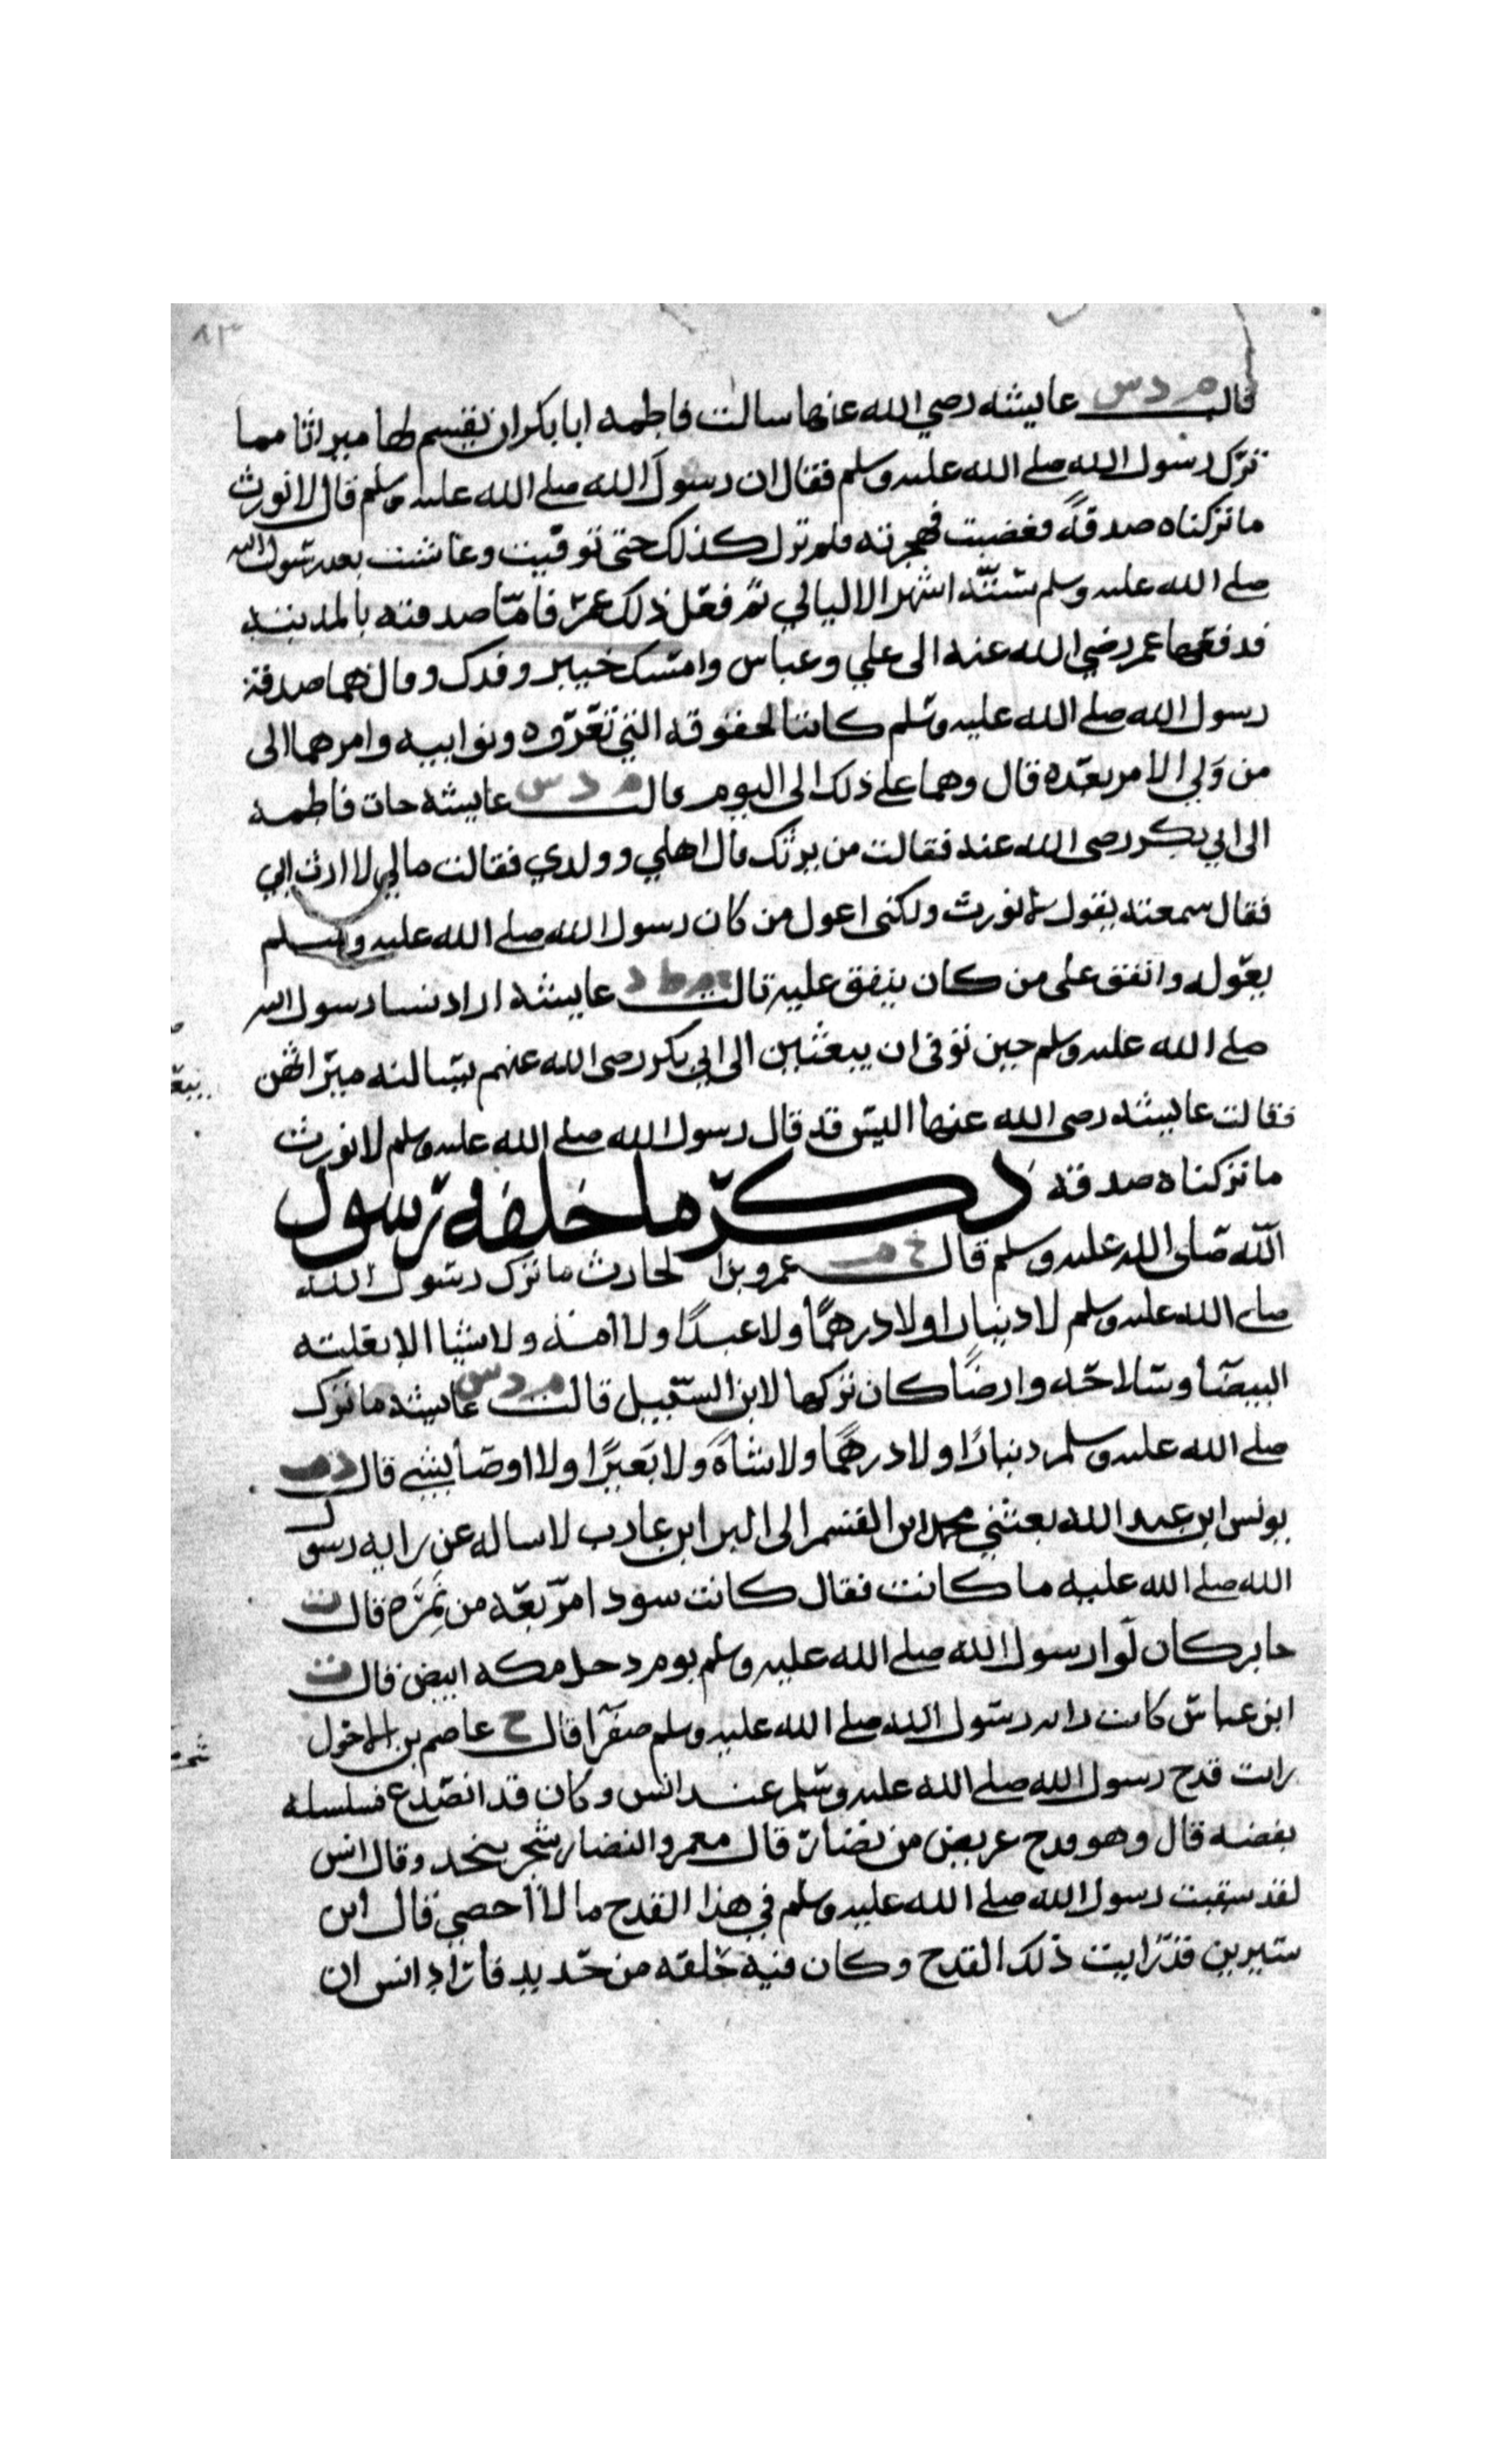 ٨٣
قالت م د س عايشه رصي الله عنها سالت فاطمه ابابكر ان يقسم لها ميراثا مما
ترك رسول الله صلے الله عليه وسلم فقال ان رسول الله صلے الله عليه وسلم قال لا نورث
ما تركناه صدقةً فغضبت فهجرته فلم تزل كذلك حتى توفيت وعاشت بعد رسول الله
صلے الله عليه وسلم ستّه اشهر الا ليالي ثم فعَل ذلك عمر فامّا صدقته بالمدينه
فدفعها عمر رضي الله عنه الى علي وعباس وامسك خيبر وفدك وقال هما صدقة
رسول الله صلے الله عليه وسلم كانتا لحقوقه التي تعَرّوه ونوايبه وامرهما الى
من وَلي الامر بعده قال وهما علے ذلك الى اليوم قالت م د س عايشه جات فاطمه
الى ابي بكر رصى الله عنه فقالت من يرثك قال اهلي وولدي فقالت مالي لا ارث ابي
فقال سمعته يقول لا نورث ولكنى اعول من كان رسول الله صلے الله عليه وسلم
يعَوله وانفق على من كان ينفق عليه قالت م ط د عايشه اراد نسا رسول الله
صلے الله عليه وسلم حين توفى ان يبعثن الى ابي بكر رصى الله عنهم يسالنه ميراثهن
فقالت عايشه رصى الله عنها اليس قد قال رسول الله صلے الله عليه وسلم لا نورث
ما تركناه صدقه ذكر ما خلفه رسول
الله صلى الله عليه وسلم قال خ م عمرو بن الحارث ما ترك رسول الله
صلے الله عليه وسلم لا دينارا ولا درهمًا ولا عبدًا ولا امة ولا شيا الا بغلته
البيضا وسلاحه وارضًا كان تركها لابن السبيل قالت م د س عايشه ما ترك
صلے الله عليه وسلم دينارًا ولا درهمًا ولا شاةً ولا بَعيرًا ولا اوصا بشي قال د ت
يونس ابن عبد الله بعثني محمد ابن القسم الى البرا ابن عازب لاساله عن رايه رسول
الله صلے الله عليه ما كانت فقال كانت سودا مربعه من نَمِرَه قال ت
جابر كان لوا رسول الله صلے الله عليه وسلم يوم دخل مكه ابيض قال ت
ابن عباس كانت رايه رسول الله صلے الله عليه وسلم صفرا قال خ عاصم بن الاحول
رايت قدح رسول الله صلے الله عليه وسلم عند انس وكان قد انصدع فسلسله
بفضه قال وهو قدح عريض من نضار قال معمر والنضار شجر بنجد وقال انس
لقد سقيت رسول الله صلے الله عليه وسلم في هذا القدح ما لا احصي قال ابن
سيرين قد رايت ذلك القدح وكان فيه حلقه من حديد فاراد انس ان